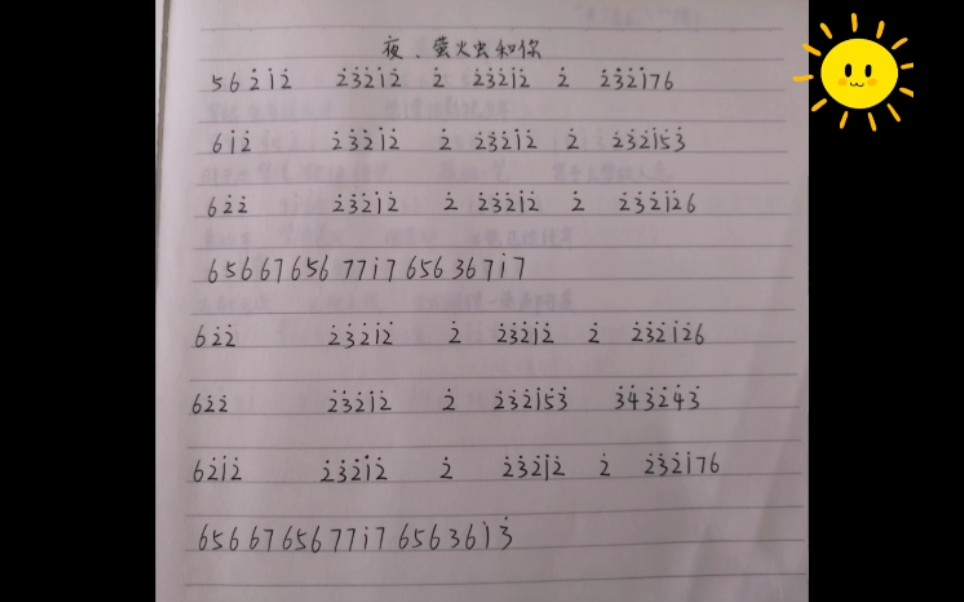 夜、萤火虫和你
562̇1̇2̇ 2̇3̇2̇1̇2̇ 2̇ 2̇3̇2̇1̇2̇ 2̇ 2̇3̇2̇1̇76
61̇2̇ 2̇3̇2̇1̇2̇ 2̇ 2̇3̇2̇1̇2̇ 2̇ 2̇3̇2̇1̇5̇3̇
62̇2̇ 2̇3̇2̇1̇2̇ 2̇ 2̇3̇2̇1̇2̇ 2̇ 2̇3̇2̇1̇2̇6
65667656 771̇7 656 3671̇7
62̇2̇ 2̇3̇2̇1̇2̇ 2̇ 2̇3̇2̇1̇2̇ 2̇ 2̇3̇2̇1̇2̇6
62̇2̇ 2̇3̇2̇1̇2̇ 2̇ 2̇3̇2̇1̇5̇3̇ 3̇4̇3̇2̇4̇3̇
62̇1̇2̇ 2̇3̇2̇1̇2̇ 2̇ 2̇3̇2̇1̇2̇ 2̇ 2̇3̇2̇1̇76
656 67656771̇7 656361̇3̇